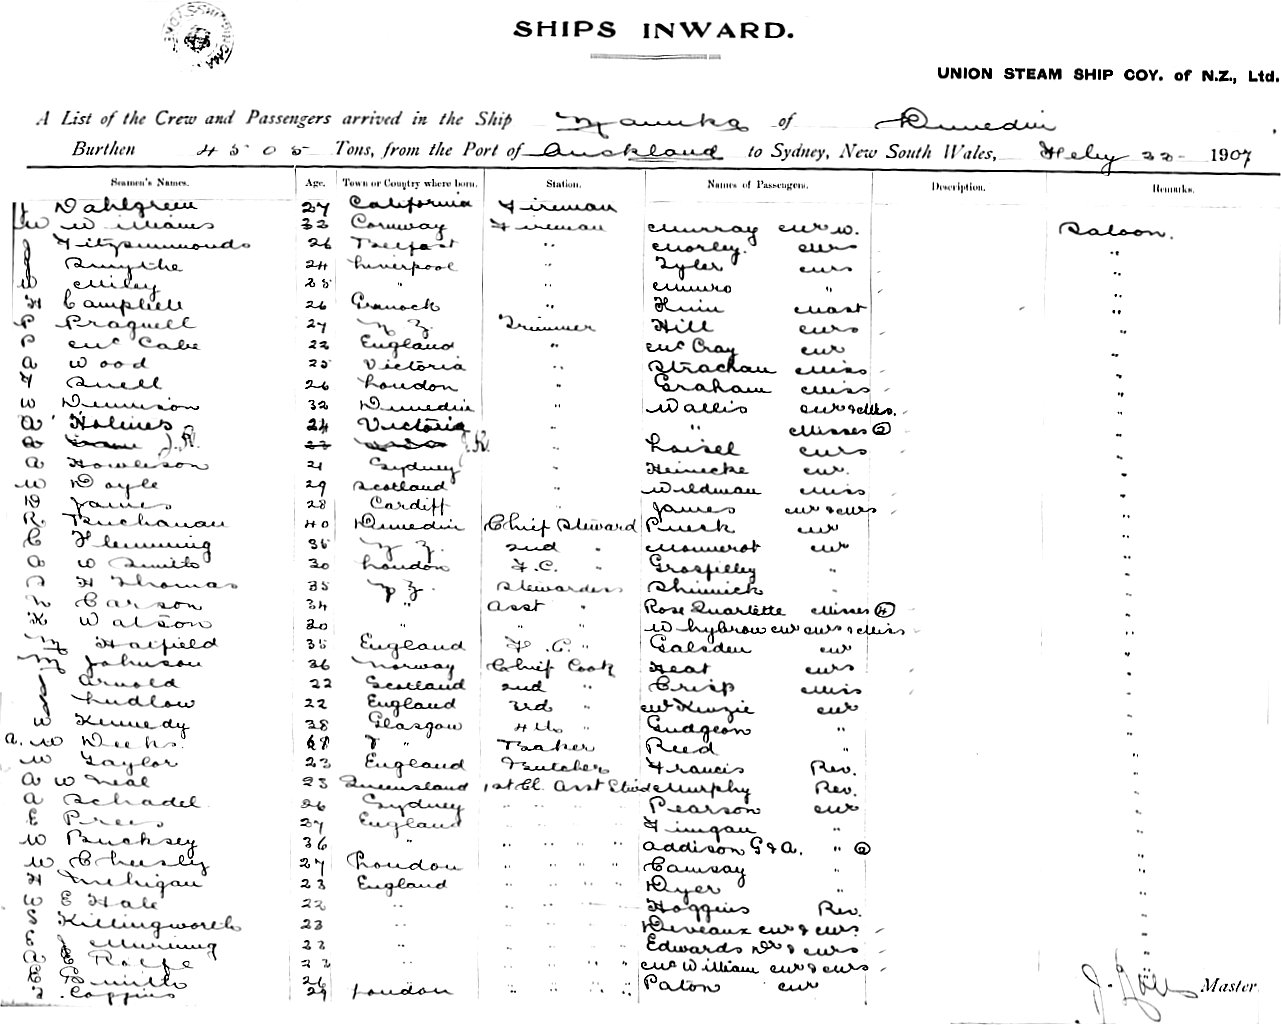 SHIPS INWARD.
UNION STEAM SHIP COY. of N.Z., Ltd.
A List of the Crew and Passengers arrived in the Ship Manuka of Dunedin
Burthen 4505 Tons, from the Port of Auckland to Sydney, New South Wales, Feby 22 1907
Seamen's Names. Age. Town or Country where born. Station. Names of Passengers. Description. Remarks.
Dahlgreen 27 California Fireman
W Williams 32 Fireman Murray Mr W. Saloon.
J Fitzsimmonds 26 Belfast " Morley. Mrs "
J Smythe 24 Liverpool " Tyler Mrs "
W Miley 25 " " Munro " "
H Campbell 26 Grenock " "
P Pragnell 27 N Z. Trimmer Hill Mrs "
P McCabe 22 England " McCray Mr "
A Wood 25 Victoria " Strachan Miss "
F Snell 26 London " Graham Miss "
W Dennison 32 Dunedin " Wallis Mr & Mrs. "
A Holmes 24 Victoria " " Misses 2 "
J.R. 23 J.R. " Loisel Mrs "
A Howieson 21 Sydney " Heinecke Mr. "
W Doyle 29 Scotland " Wildman Miss "
D James 28 Cardiff " James Mr & Mrs "
R. Buchanan 40 Dunedin Chief Steward Mr "
C Flemming 35 N Z. 2nd " Monnerot Mr "
A W Smith 30 London F.C. " "
H Thomas 35 N Z. Stewardess Shinnick " "
Carson 34 " Asst " Rose Quartette Misses 4 "
K Watson 20 " " " Whybrow Mr Mrs & Miss "
Hatfield 35 England F.C. " Galsden Mr "
Johnson 36 Norway Chief Cook Heat Mrs "
J Arnold 22 Scotland 2nd " Crisp Miss "
J Ludlow 22 England 3rd " McKenzie Mr "
W Kennedy 38 Glasgow 4th " Gudgeon " "
A. W Weeks. " Baker Reed " "
W Taylor 23 England Butcher Francis Rev. "
A W Neal 23 Queensland 1st Cl. Asst Stwd Murphy Rev. "
A Schadel 26 Sydney " " " " Pearson Mr "
E Prees 37 England " " " " Finigan " "
W Bucksey 36 " " " " " Addison G & A. " 2 "
W Chesly 27 London " " " " Ramsay " "
H Mehigan 23 England " " " " Dyer " "
W E Hale 22 " " " " " Hoggins Rev. "
S Killingworth 23 " Deveaux Mr & Mrs. "
E J Munning 22 " " " " " Edwards Dr & Mrs "
Rolfe 22 " " " " " McWilliam Mr & Mrs "
Smith 26 Paton Mr "
F. Coppins 29 London " " " "
Master.